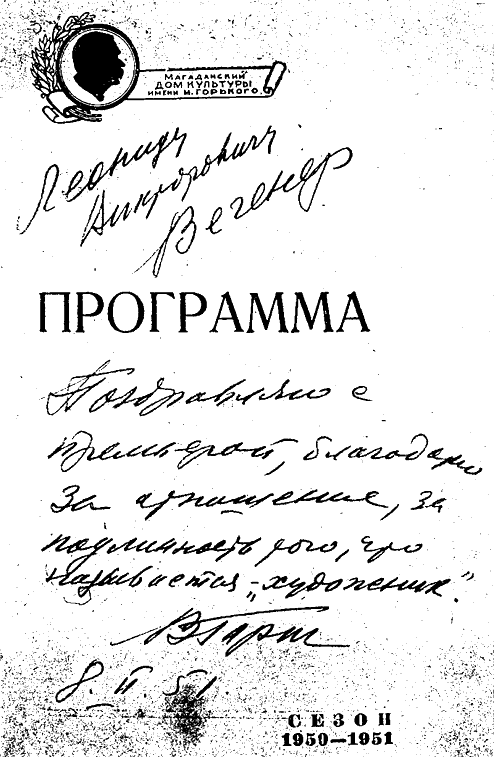 МАГАДАНСКИЙ
ДОМ КУЛЬТУРЫ
ИМЕНИ М. ГОРЬКОГО
Леониду
Викторовичу
Вегенер
ПРОГРАММА
Поздравляю с
премьерой, благодарю
За отношение, за
подлинность того, что
называется - „художник".
8. II. 51.
СЕЗОН
1950—1951